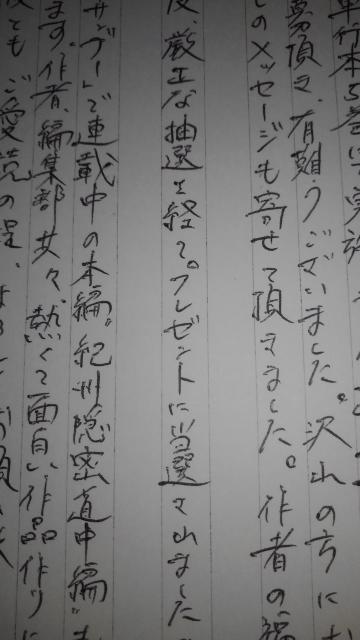 単行本5巻にて実施
募頂き、有難うございました。沢山の方に
のメッセージも寄せて頂きました。作者の
厳正な抽選を経て。プレゼントに当選されました
サデー"で連載中の本編。紀州隠密道中編"
ます。作者、編集部共々、熱くて面白い作品作りに
ご愛読の程、